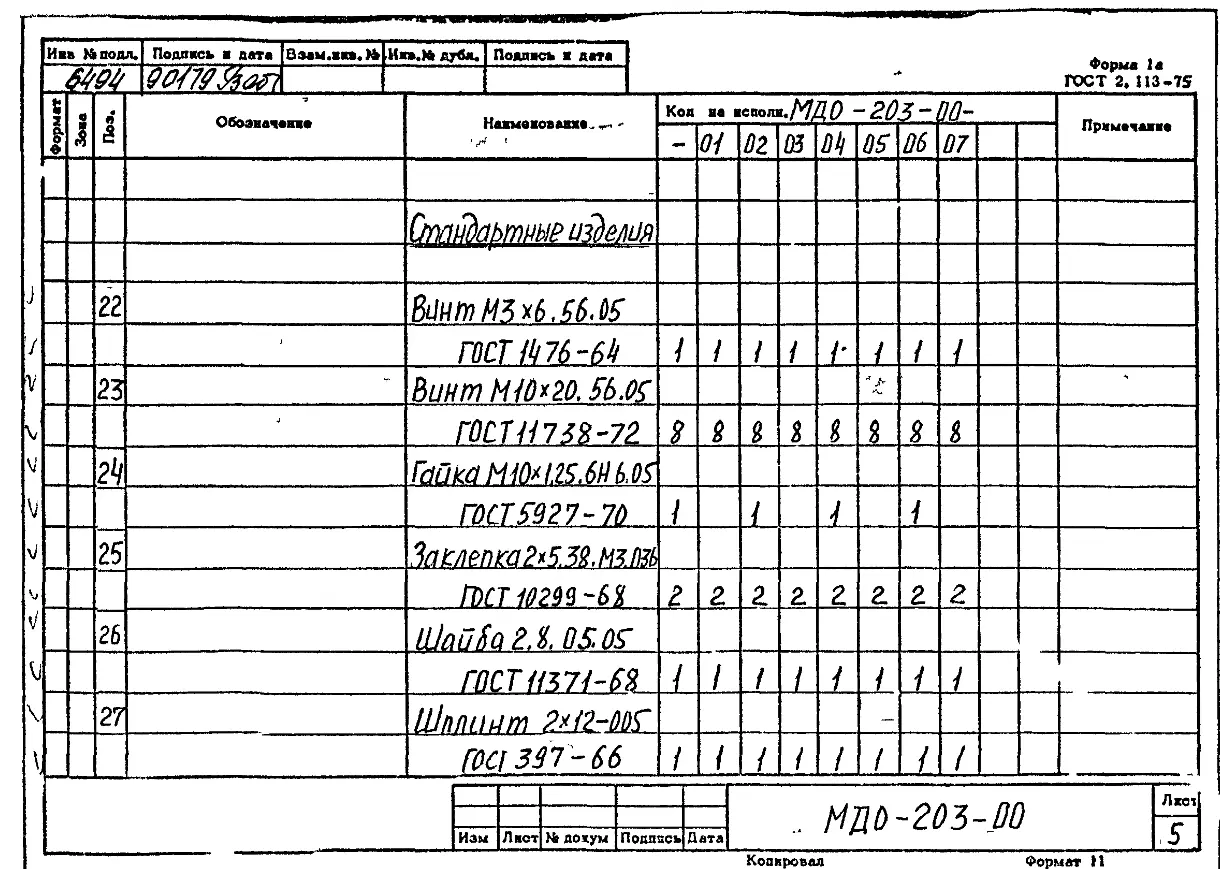 Инв № подл. Подпись и дата Взам.инв. № Инв.№ дубл. Подпись и дата
6494 90179
Форма 1а
ГОСТ 2.113-75
Формат Зона Поз. Обозначение Наименование Кол на исполн. МДО-203-00- Примечание
- 01 02 03 04 05 06 07
Стандартные изделия
22 Винт М3×6.56.05
ГОСТ 1476-64 1 1 1 1 1 1 1 1
23 Винт М10×20.56.05
ГОСТ 11738-72 8 8 8 8 8 8 8 8
24 Гайка М10×1,25.6Н 6.05
ГОСТ 5927-70 1 1 1 1
25 Заклепка 2×5.38.М3.036
ГОСТ 10299-68 2 2 2 2 2 2 2 2
26 Шайба 2.8.05.05
ГОСТ 11371-68 1 1 1 1 1 1 1 1
27 Шплинт 2×12-005
ГОСТ 397-66 1 1 1 1 1 1 1 1
МДО-203-00
Лист
5
Изм Лист № докум Подпись Дата
Копировал Формат 11